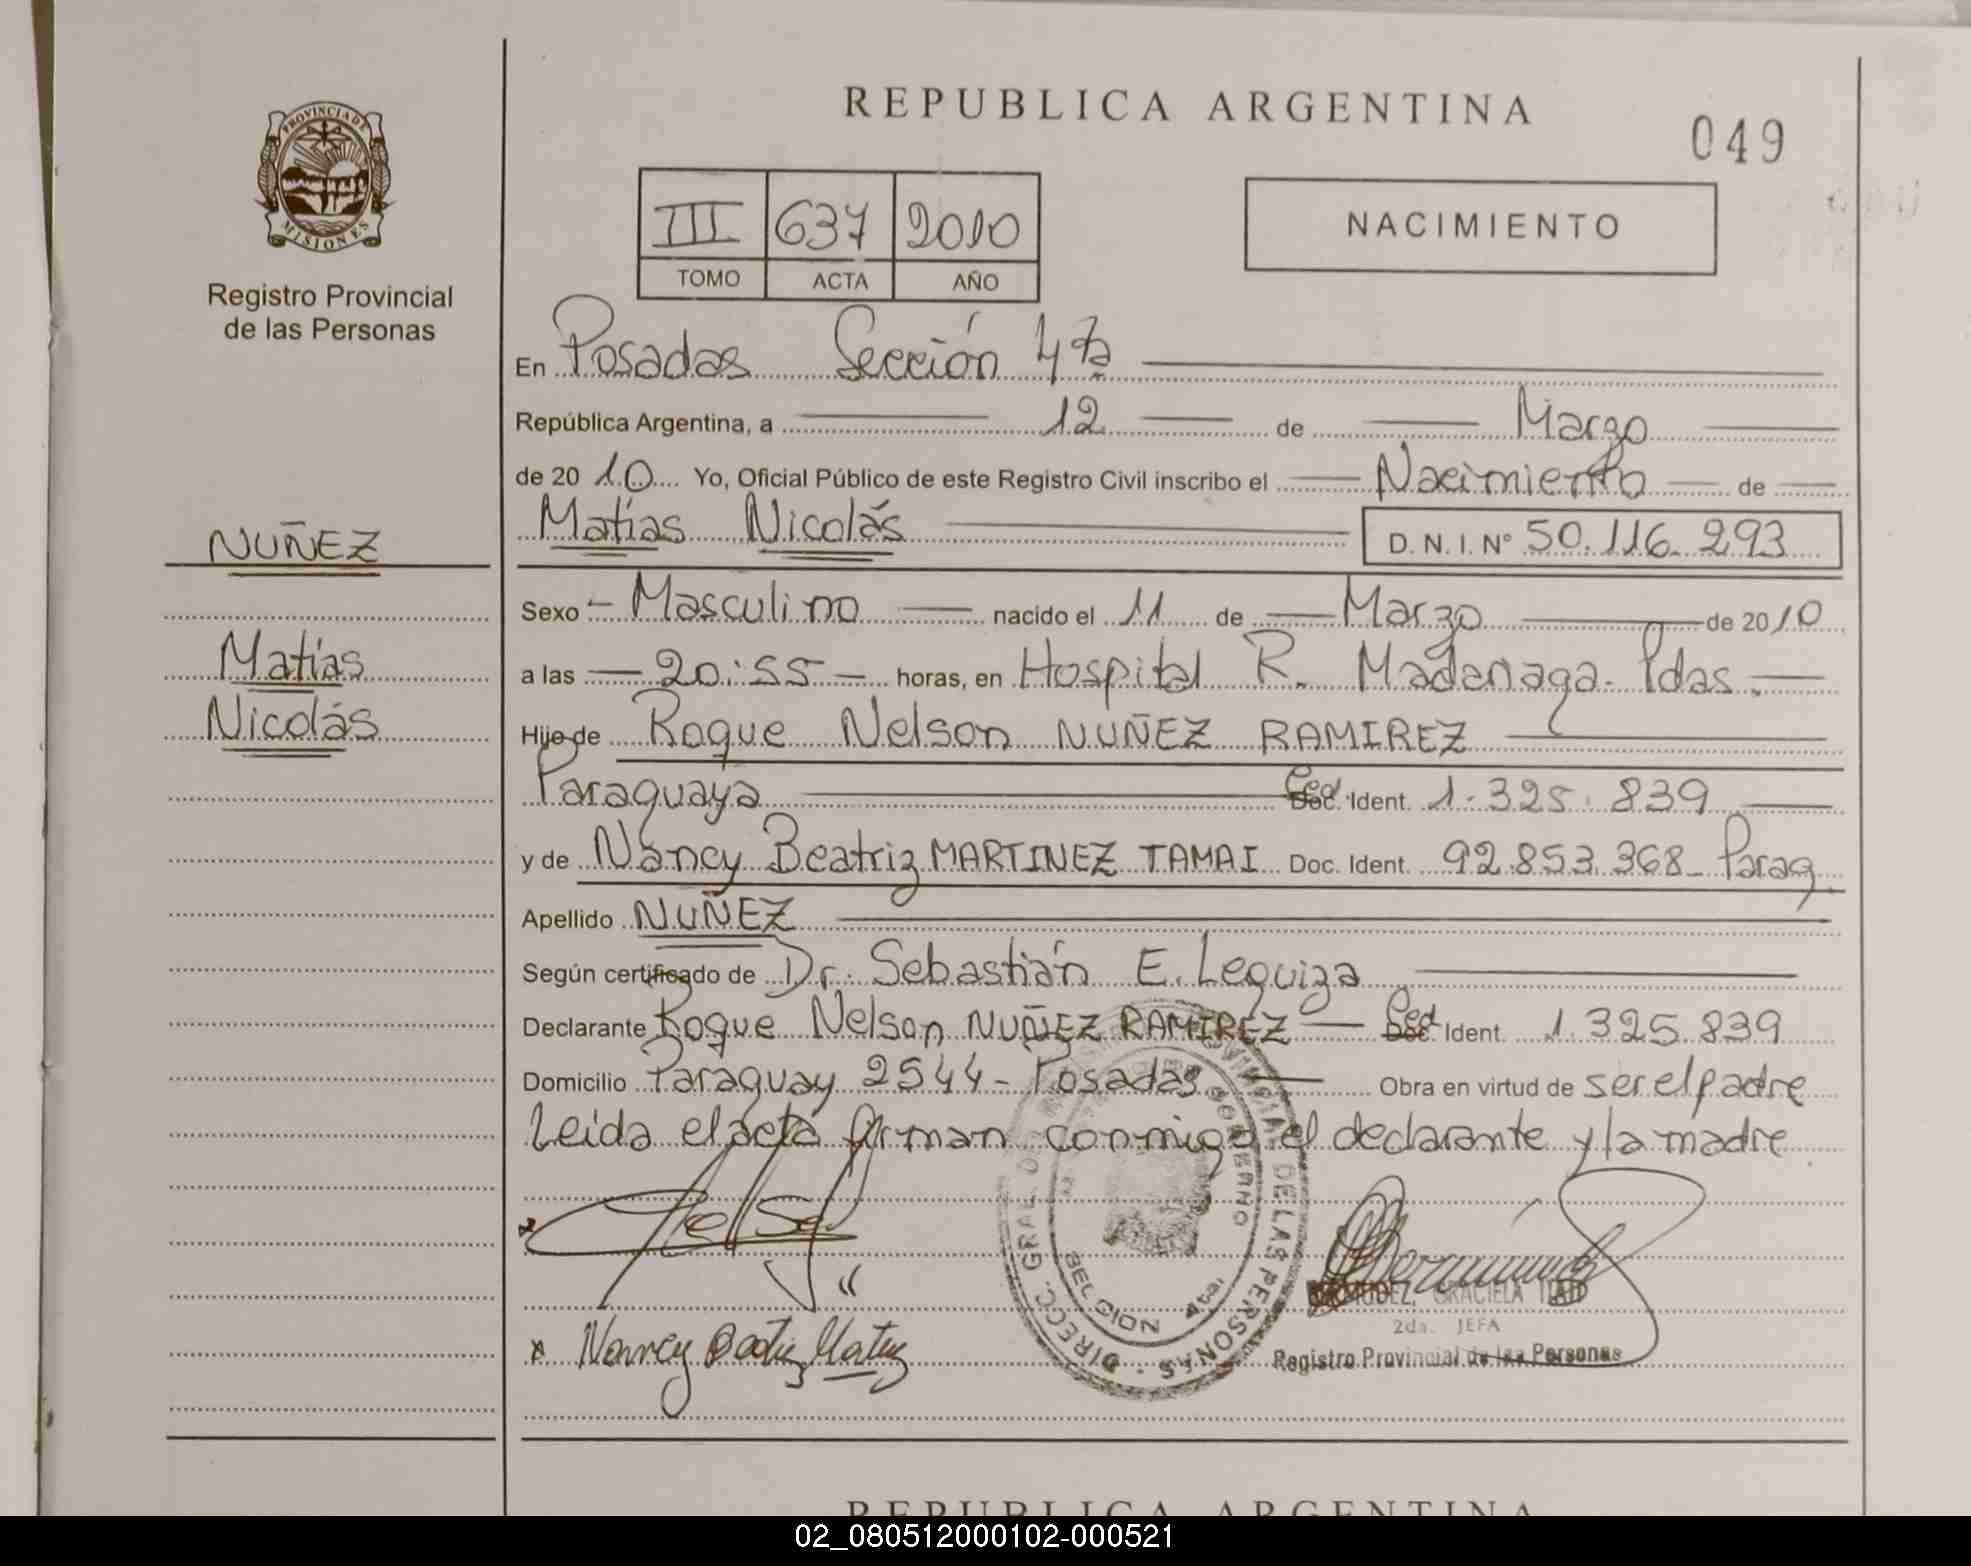 PROVINCIA DE
MISIONES
Registro Provincial
de las Personas
NUÑEZ
Matías
Nicolás
REPUBLICA ARGENTINA
049
III 637 2010
TOMO ACTA AÑO
NACIMIENTO
En Posadas Sección 4ta
República Argentina, a 12 de Marzo
de 2010 Yo, Oficial Público de este Registro Civil inscribo el Nacimiento de
Matías Nicolás D. N. I. N° 50.116.293
Sexo Masculino nacido el 11 de Marzo de 2010
a las 20:55 horas, en Hospital R. Madariaga. Pdas.
Hijo de Roque Nelson NUÑEZ RAMIREZ
Paraguaya Ced. Ident. 1.325.839
y de Nancy Beatriz MARTINEZ TAMAI Doc. Ident. 92.853.368 Parag.
Apellido NUÑEZ
Según certificado de Dr. Sebastián E. Leguiza
Declarante Roque Nelson NUÑEZ RAMIREZ Ced Ident. 1.325.839
Domicilio Paraguay 2544 - Posadas Obra en virtud de ser el padre
Leida el acta firman conmigo el declarante y la madre
DIRECC. GRAL. DE LAS PERSONAS
BELGRANO 4ta.
BERMUDEZ, GRACIELA
2da. JEFA
Registro Provincial de las Personas
Nancy Beatriz
REPUBLICA ARGENTINA
02_080512000102-000521